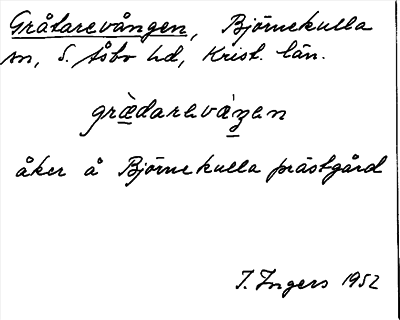 Gråtarevången, Björnekulla
sn, S. Åsbo hd, Krist. län.
græ̀darevàŋen
åker å Björnekulla prästgård
I. Ingers 1952